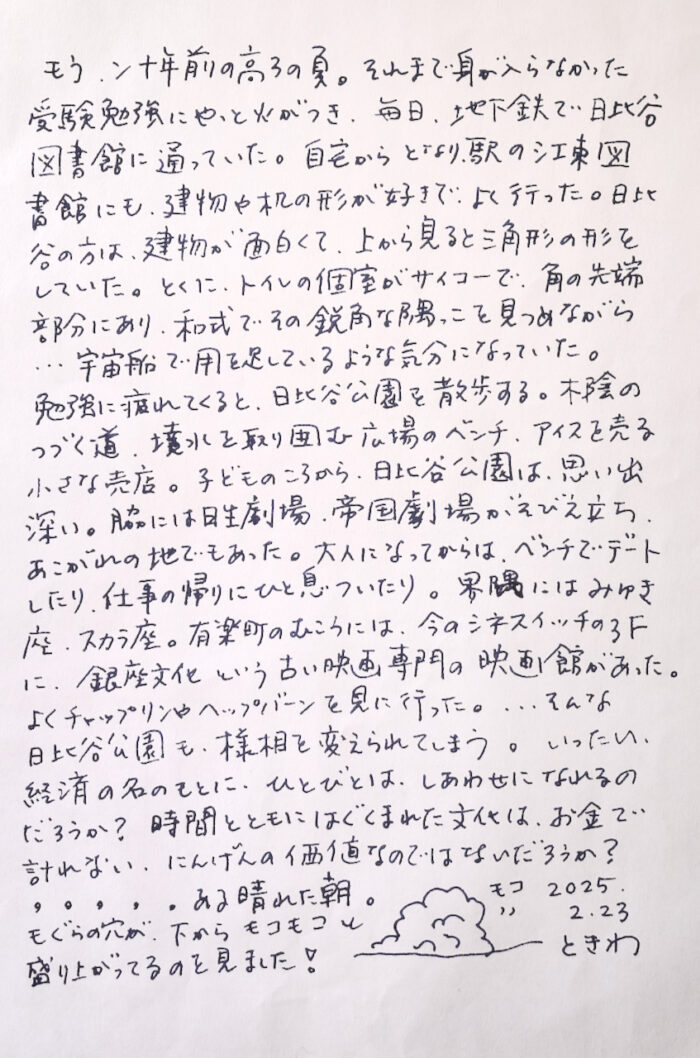 もう、ン十年前の高3の夏。それまで身が入らなかった
受験勉強にやっと火がつき、毎日、地下鉄で日比谷
図書館に通っていた。自宅からとなり駅の江東図
書館にも、建物や机の形が好きで、よく行った。日比
谷の方は、建物が面白くて、上から見ると三角形の形を
していた。とくに、トイレの個室がサイコーで、角の先端
部分にあり、和式でその鋭角な隅っこを見つめながら
…宇宙船で用を足しているような気分になっていた。
勉強に疲れてくると、日比谷公園を散歩する。木陰の
つづく道、噴水を取り囲む広場のベンチ、アイスを売る
小さな売店。子どものころから、日比谷公園は、思い出
深い。脇には日生劇場、帝国劇場がそびえ立ち、
あこがれの地でもあった。大人になってからは、ベンチでデート
したり、仕事の帰りにひと息ついたり。界隈にはみゆき
座、スカラ座。有楽町のむこうには、今のシネスイッチの3F
に、銀座文化という古い映画専門の映画館があった。
よくチャップリンやヘップバーンを見に行った。…そんな
日比谷公園も、様相を変えられてしまう。いったい、
経済の名のもとに、ひとびとは、しあわせになれるの
だろうか?時間とともにはぐくまれた文化は、お金で
計れない、にんげんの価値なのではないだろうか?
，。，，。ある晴れた朝。
もぐらの穴が、下からモコモコと
盛り上がってるのを見ました!
モコ〃
2025.
2.23
ときわ